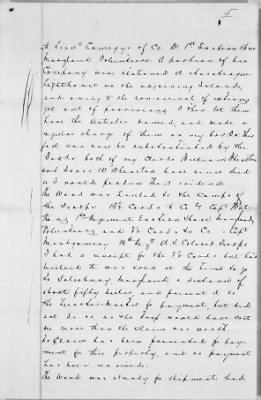 5
to Lieut Comegys of Co B. 1st Eastern Shore
Maryland Volunteers. A portion of his
Company were stationed at Chincoteague
lighthouse on the adjoining Islands,
and owing to the non-arrival of rations
got out of provisions, I then let them
have the Articles named, and made a
regular charge of them on my books. This
fact can now be substantiated by the
Books, both of my Clerks William Whealton
and Isaac W. Whealton have since died
or I would produce their evidence
The Wood was hauled to the Camps of
the Troops Cords to Co Capt
1st Regiment Eastern Shore Maryland
Volunteers, and Cords to Co Capt
Montgomery Regt U.S. Colored Troops
I had a receipt for the Cords but has
I was told at the time to go
to Salisbury Maryland a distance of
about fifty miles and present it to
the Quartermaster for payment, but did
not do so as the trip would have cost
me more than the claim was worth.
No Claim has been presented for pay-
ment for this property, and no payment
has been received.
The Wood was ready for shipment, had